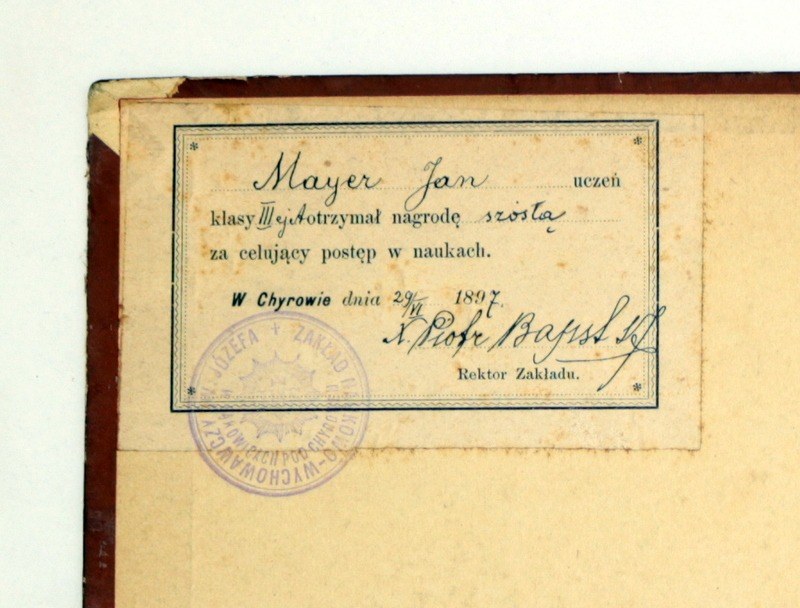 Mayer Jan uczeń
klasy III ej A otrzymał nagrodę szóstą
za celujący postęp w naukach.
W Chyrowie dnia 29/VI 1897.
X. Piotr Bapst SJ
Rektor Zakładu.
ZAKŁAD NAUKOWO-WYCHOWAWCZY ŚW. JÓZEFA +
W BĄKOWICACH POD CHYROWEM